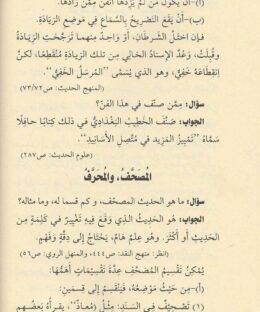 (أ)-أن يكون من لم يزدها أتقن ممن زادها.
(ب)-أن يقع التصريح بالسماع في موضع الزيادة.
فإن اختل الشرطان، أو واحد منهما ترجحت الزيادة
وقبلت، وعد الإسناد الخالي من تلك الزيادة منقطعا، لكن
انقطاعه خفي، وهو الذي يسمى "المرسل الخفي".
(المنهج الحديث: ص٧٢/٧٣)
سؤال: ممن صنف في هذا الفن؟
الجواب: صنف الخطيب البغدادي في ذلك كتابا حافلا
سماه "تمييز المزيد في متصل الأسانيد".
(علوم الحديث: ص٢٨٧)
المصحف، والمحرف
سؤال: ما هو الحديث المصحف، و كم قسما له، وما مثاله؟
الجواب: هو الحديث الذي وقع فيه تغيير في كلمة من
الحديث أو أكثر. وهو علم هام، يحتاج إلى دقة وفهم.
(انظر: منهج النقد: ص٤٤٤، والمنهل الروي: ص٥٦)
يمكن تقسيم المصحف عدة تقسيمات أهمها:
(أ)-من حيث موضعه، فينقسم إلى قسمين:
(١) تصحيف في السند: مثل (معاذ)، يقرأه بعضهم